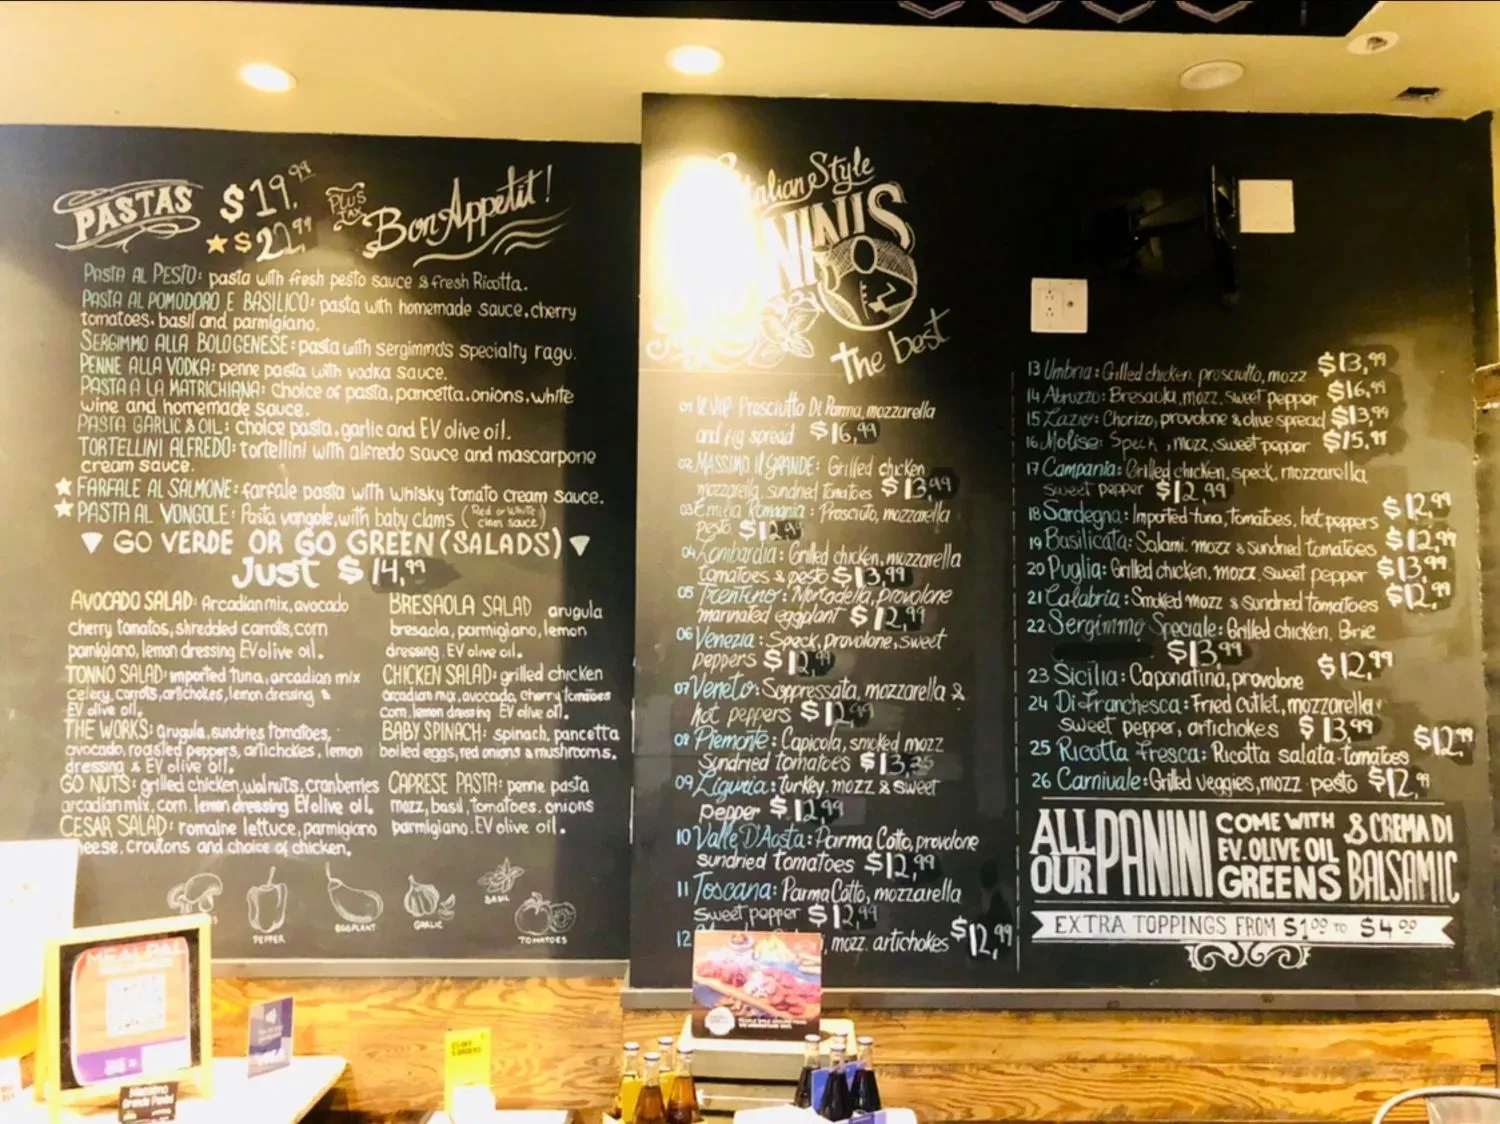 PASTAS $19.99
★$22.99
PLUS TAX
Bon Appetit!
PASTA AL PESTO: pasta with fresh pesto sauce & fresh Ricotta.
PASTA AL POMODORO E BASILICO: pasta with homemade sauce, cherry
tomatoes, basil and parmigiano.
SERGIMMO ALLA BOLOGENESE: pasta with sergimmo's specialty ragu.
PENNE ALLA VODKA: penne pasta with vodka sauce.
PASTA A LA MATRICHIANA: Choice of pasta, pancetta, onions, white
wine and homemade sauce.
PASTA GARLIC & OIL: choice pasta, garlic and EV olive oil.
TORTELLINI ALFREDO: tortellini with alfredo sauce and mascarpone
cream sauce.
★ FARFALE AL SALMONE: farfale pasta with whisky tomato cream sauce.
★ PASTA AL VONGOLE: Pasta vongole, with baby clams (Red or White clam sauce)
GO VERDE OR GO GREEN (SALADS)
Just $14.99
AVOCADO SALAD: Arcadian mix, avocado
cherry tomatos, shredded carrots, corn
parmigiano, lemon dressing EV olive oil.
TONNO SALAD: imported tuna, arcadian mix
celery, carrots, artichokes, lemon dressing &
EV olive oil.
THE WORKS: Arugula, sundries tomatoes,
avocado, roasted peppers, artichokes, lemon
dressing & EV olive oil.
GO NUTS: grilled chicken, walnuts, cranberries
arcadian mix, corn, lemon dressing EV olive oil.
CESAR SALAD: romaine lettuce, parmigiano
heese, croutons and choice of chicken.
BRESAOLA SALAD arugula
bresaola, parmigiano, lemon
dressing EV olive oil.
CHICKEN SALAD: grilled chicken
arcadian mix, avocado, cherry tomatoes
corn, lemon dressing EV olive oil.
BABY SPINACH: spinach, pancetta
boiled eggs, red onions & mushrooms.
CAPRESE PASTA: penne pasta
mozz, basil, tomatoes, onions
parmigiano. EV olive oil.
PEPPER
EGGPLANT
GARLIC
BASIL
TOMATOES
Italian Style
the best
01 IL VIP Prosciutto Di Parma, mozzarella
and fig spread $16.99
02 MASSIMO IL GRANDE: Grilled chicken
mozzarella, sundried tomatoes $13.99
03 Emilia Romagna: Prosciuto, mozzarella
pesto
04 Lombardia: Grilled chicken, mozzarella
tomatoes & pesto $13.99
05 Trentino: Mortadella, provolone
marinated eggplant $12.99
06 Venezia: Speck, provolone, sweet
peppers $12.99
07 Veneto: Soppressata, mozzarella &
hot peppers $12.99
08 Piemonte: Capicola, smoked mozz
Sundried tomatoes
09 Liguria: turkey, mozz & sweet
pepper $12.99
10 Valle D'Aosta: Parma Cotto, provolone
sundried tomatoes $12.99
11 Toscana: Parma Cotto, mozzarella
sweet pepper $12.99
12 mozz, artichokes $12.99
13 Umbria: Grilled chicken, prosciutto, mozz $13.99
14 Abruzzo: Bresaola, mozz, sweet pepper $16.99
15 Lazio: Chorizo, provolone & olive spread $13.99
16 Molise: Speck, mozz, sweet pepper $15.99
17 Campania: Grilled chicken, speck, mozzarella
sweet pepper $12.99
18 Sardegna: Imported tuna, tomatoes, hot peppers $12.99
19 Basilicata: Salami, mozz & sundried tomatoes $12.99
20 Puglia: Grilled chicken, mozz, sweet pepper $13.99
21 Calabria: Smoked mozz & sundried tomatoes $12.99
22 Sergimmo Speciale: Grilled chicken, Brie
$13.99
23 Sicilia: Caponatina, provolone $12.99
24 Di Franchesca: Fried cutlet, mozzarella,
sweet pepper, artichokes $13.99
25 Ricotta Fresca: Ricotta salata, tomatoes $12.99
26 Carnivale: Grilled veggies, mozz, pesto $12.99
ALL OUR PANINI COME WITH EV. OLIVE OIL GREENS & CREMA DI BALSAMIC
EXTRA TOPPINGS FROM $1.00 TO $4.00
MEALPAL
VISA
Massimo
Grande Panini